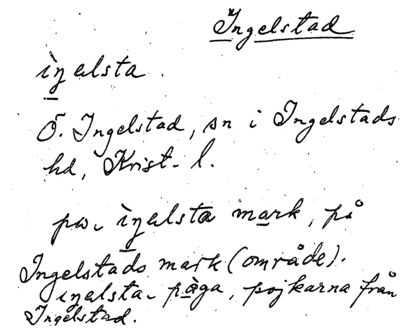 Ingelstad
iŋəlsta.
Ö. Ingelstad, sn i Ingelstads
hd, Krist. l.
pa- iŋəlsta mark, på
Ingelstads mark (område).
iŋəlsta- påga, pojkarna från
Ingelstad.